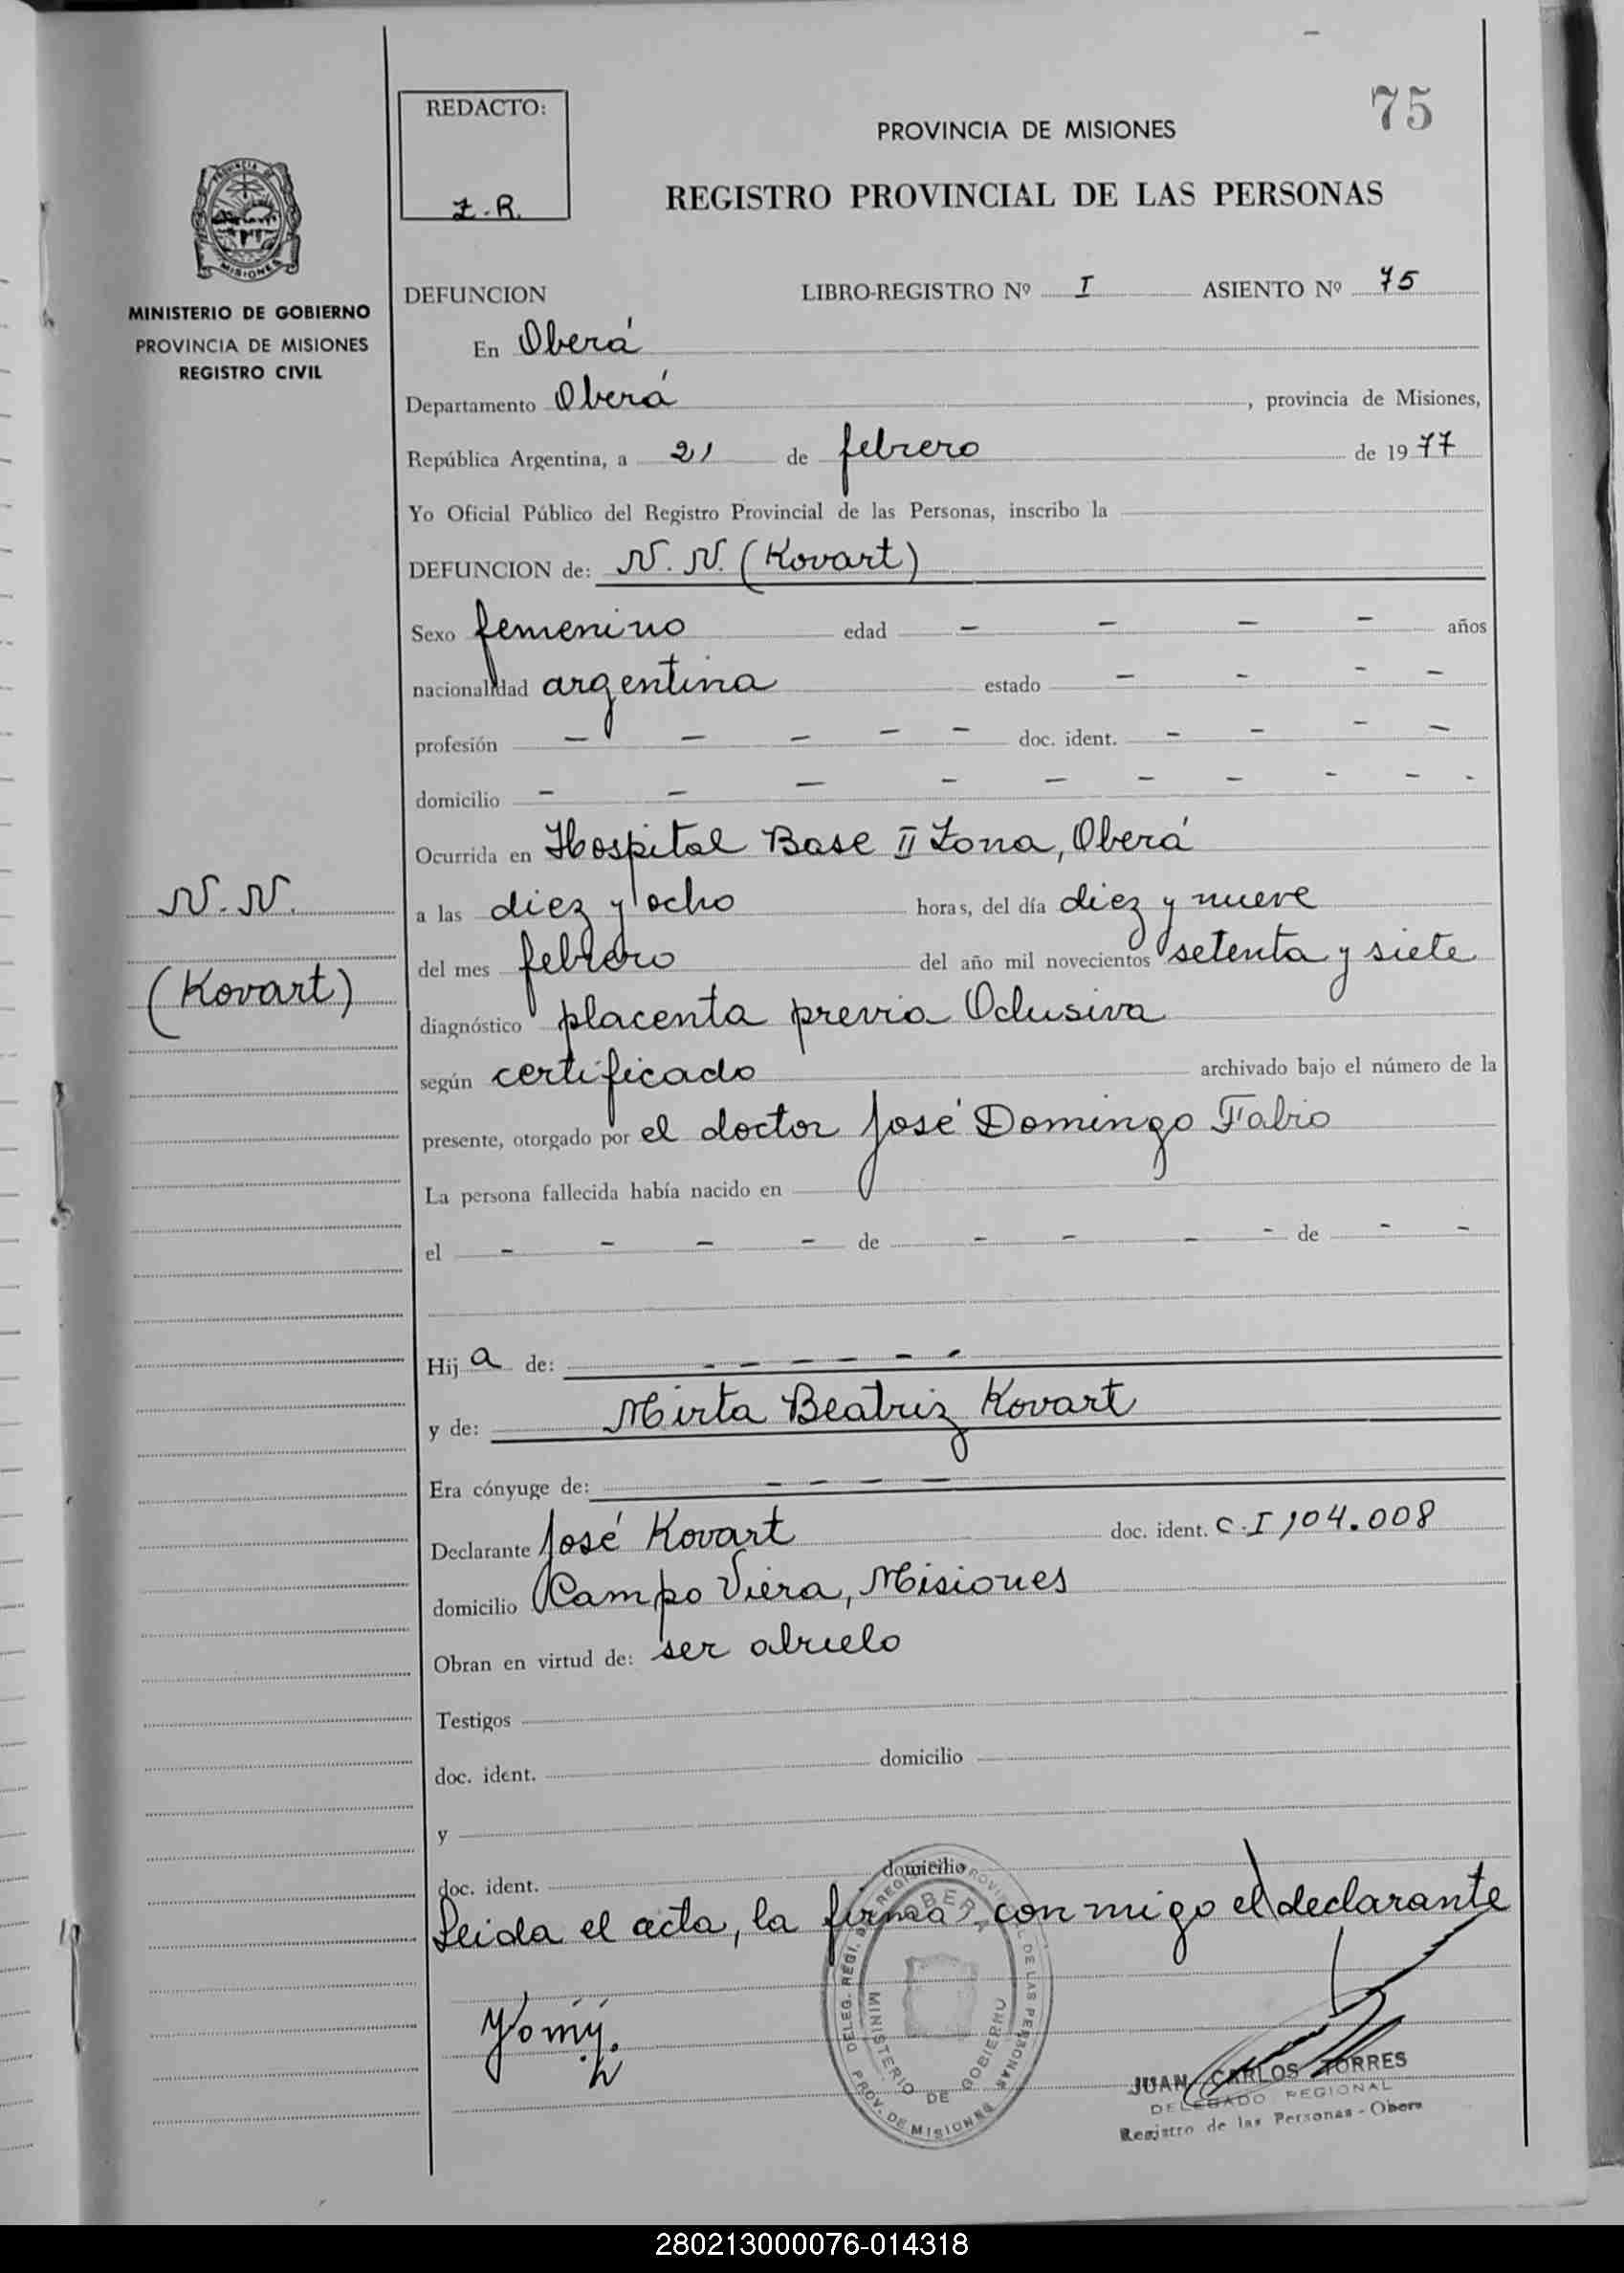 75
REDACTO:
Z.R.
PROVINCIA DE MISIONES
REGISTRO PROVINCIAL DE LAS PERSONAS
PROVINCIA DE
MISIONES
MINISTERIO DE GOBIERNO
PROVINCIA DE MISIONES
REGISTRO CIVIL
DEFUNCION LIBRO-REGISTRO Nº I ASIENTO Nº 75
En Oberá
Departamento Oberá, provincia de Misiones,
República Argentina, a 21 de febrero de 1977
Yo Oficial Público del Registro Provincial de las Personas, inscribo la
DEFUNCION de: N. N. (Kovart)
Sexo femenino edad - - - - años
nacionalidad argentina estado - - - -
profesión - - - - - doc. ident. - - - -
domicilio - - - - - - - - - -
Ocurrida en Hospital Base II Zona, Oberá
N. N.
(Kovart)
a las diez y ocho horas, del día diez y nueve
del mes febrero del año mil novecientos setenta y siete
diagnóstico placenta previa Oclusiva
según certificado archivado bajo el número de la
presente, otorgado por el doctor José Domingo Fabio
La persona fallecida había nacido en
el - - - - de - - - - de - -
Hij a de: - - - - - -
y de: Mirta Beatriz Kovart
Era cónyuge de: - - - -
Declarante José Kovart doc. ident. C.I 104.008
domicilio Campo Viera, Misiones
Obran en virtud de: ser abuelo
Testigos
doc. ident. domicilio
y
doc. ident. domicilio
Leida el acta, la firma conmigo el declarante
OBERA
MINISTERIO DE GOBIERNO
PROV. DE MISIONES
JUAN CARLOS TORRES
DELEGADO REGIONAL
Registro de las Personas - Obera
280213000076-014318